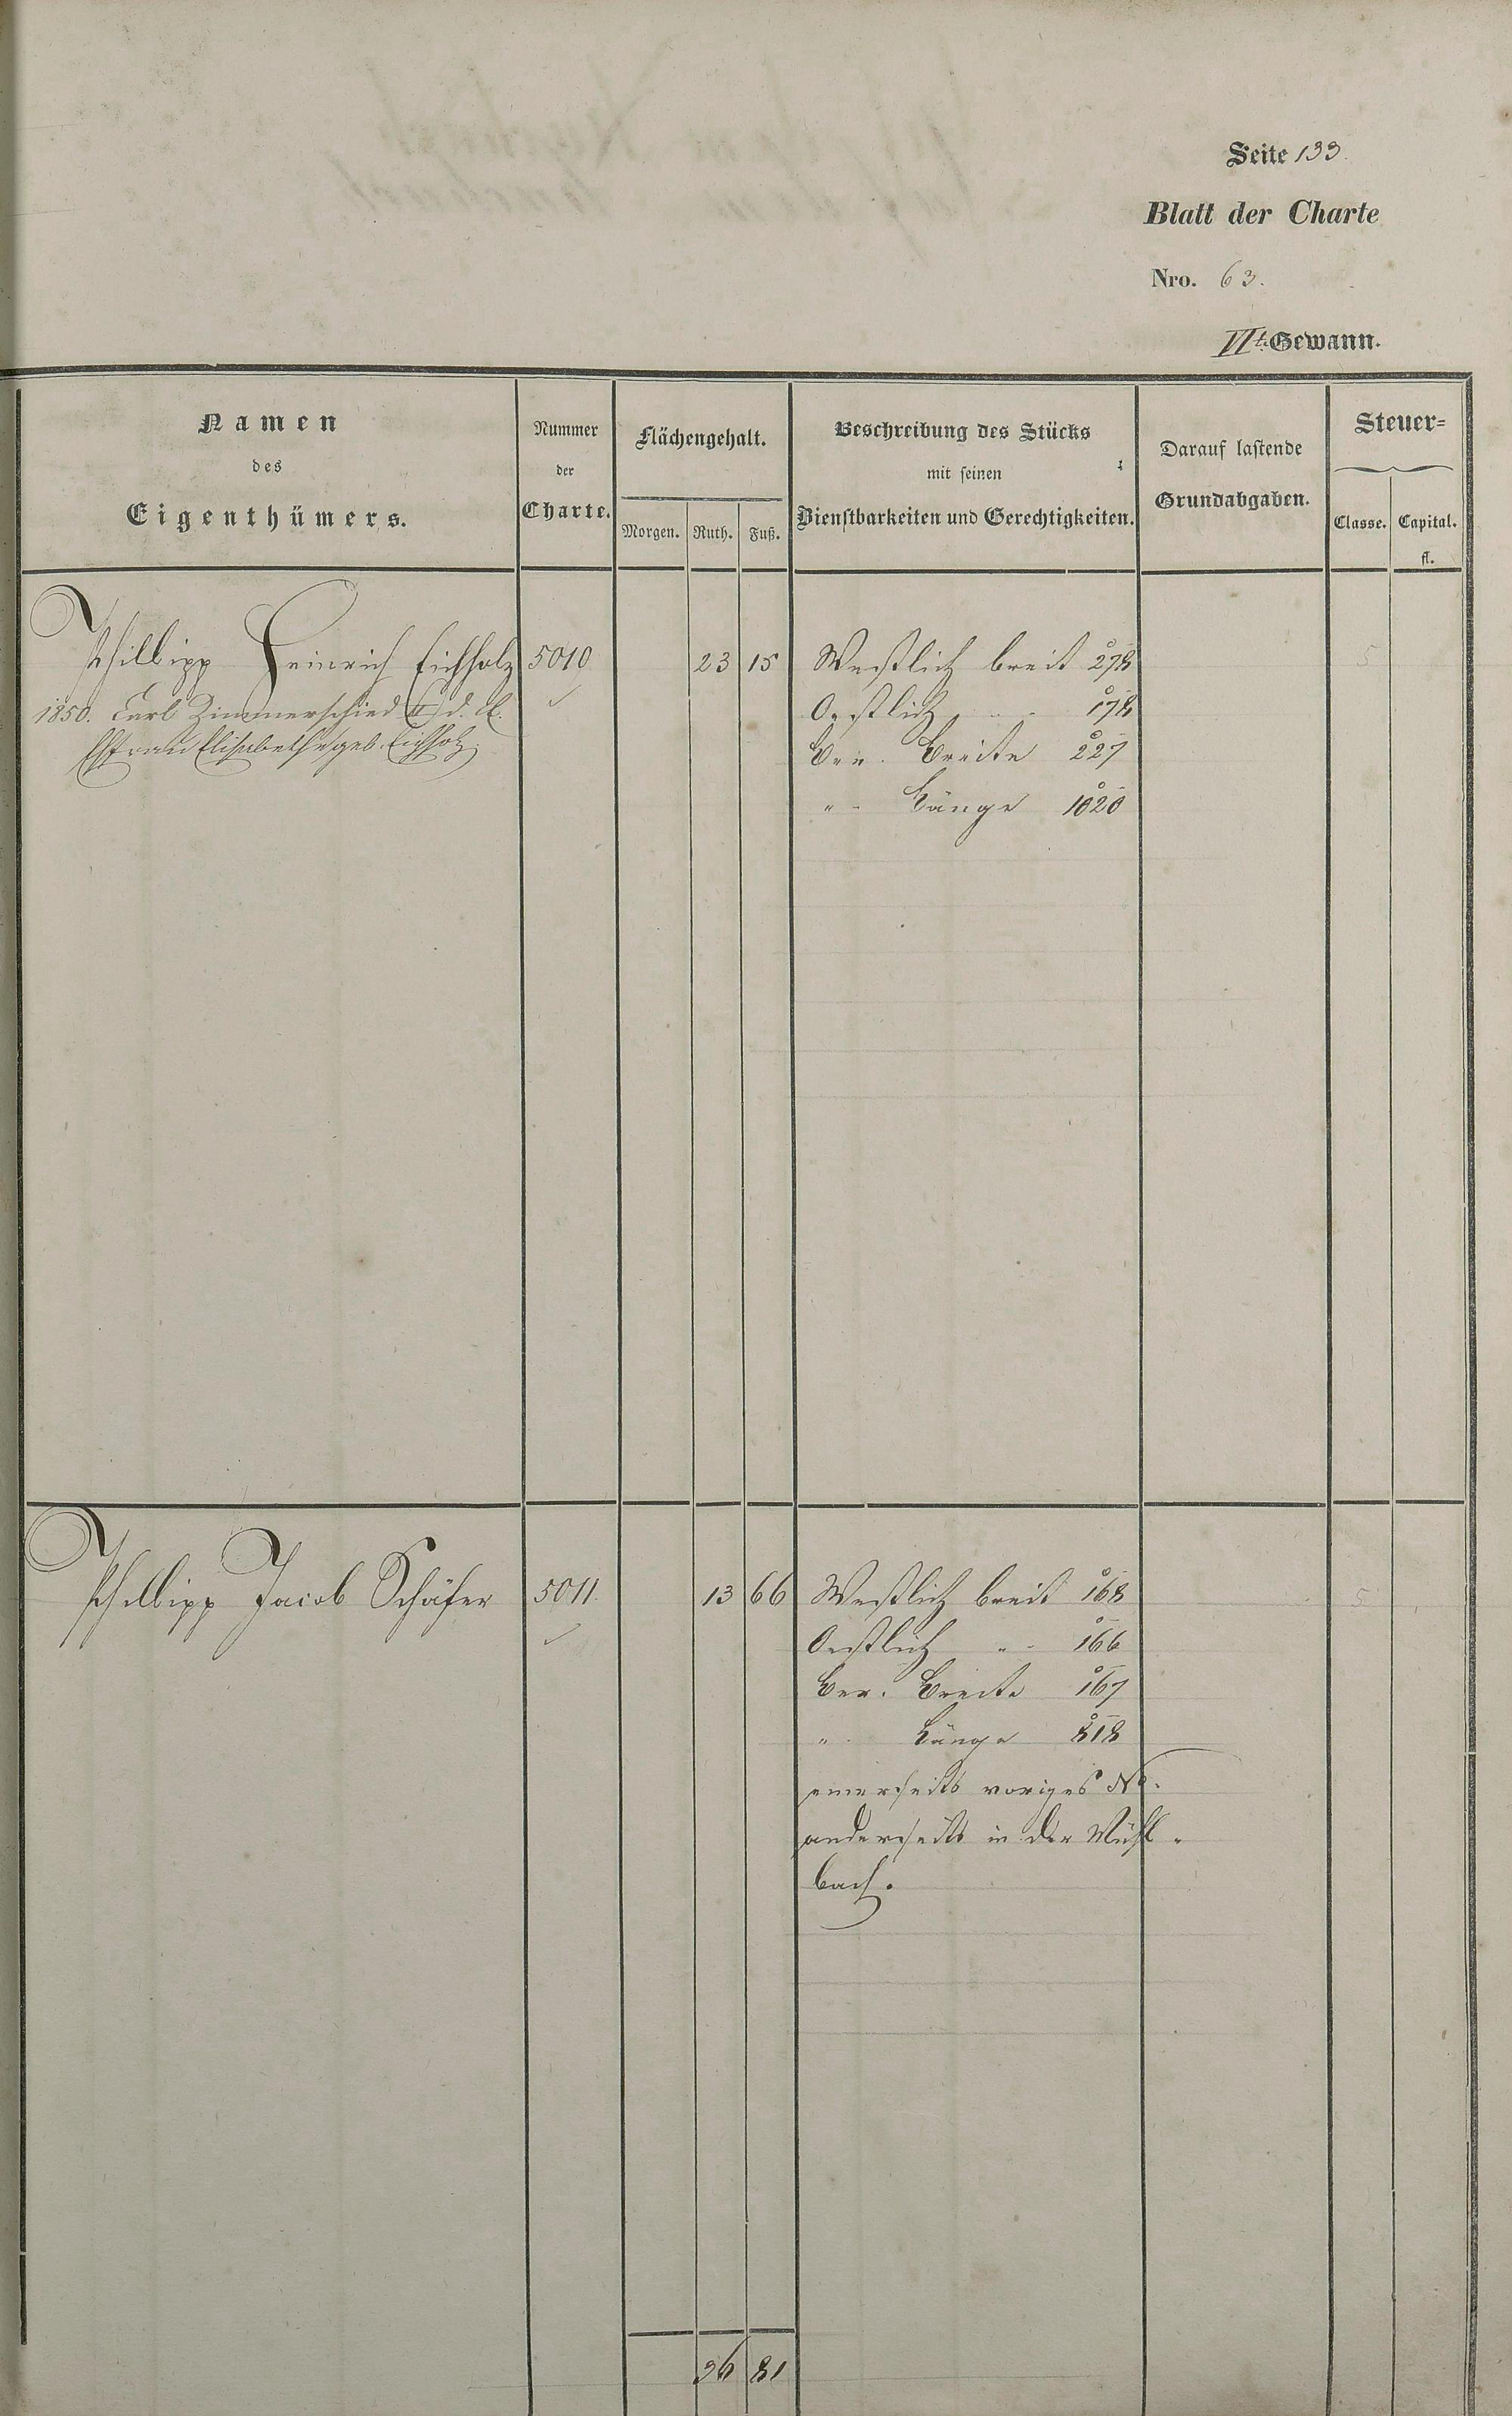 Seite 133.
Blatt der Charte
Nro. 63.
VIte Gewann.
Namen
des
Eigenthümers.
Nummer
der
Charte.
Flächengehalt.
Morgen. Ruth. Fuß.
Beschreibung des Stücks
mit seinen
Dienstbarkeiten und Gerechtigkeiten.
Darauf lastende
Grundabgaben.
Steuer=
Classe. Capital.
fl.
Phillipp Heinrich Eichholz 5010 23 15 Westlich breit 278 5
1850. Carl Zimmerschied II d. A. Oestlich " 178
Ehfrau Elisabethe geb. Eichholz. Ber. Breite 227
" Länge 1020
Phillipp Jacob Schäfer 5011. 13 66 Westlich breit 168 5
Oestlich " 166
Ber. Breite 167
" Länge 818
einerseits voriges No.
anderseits in der Mühl-
bach.
36 81